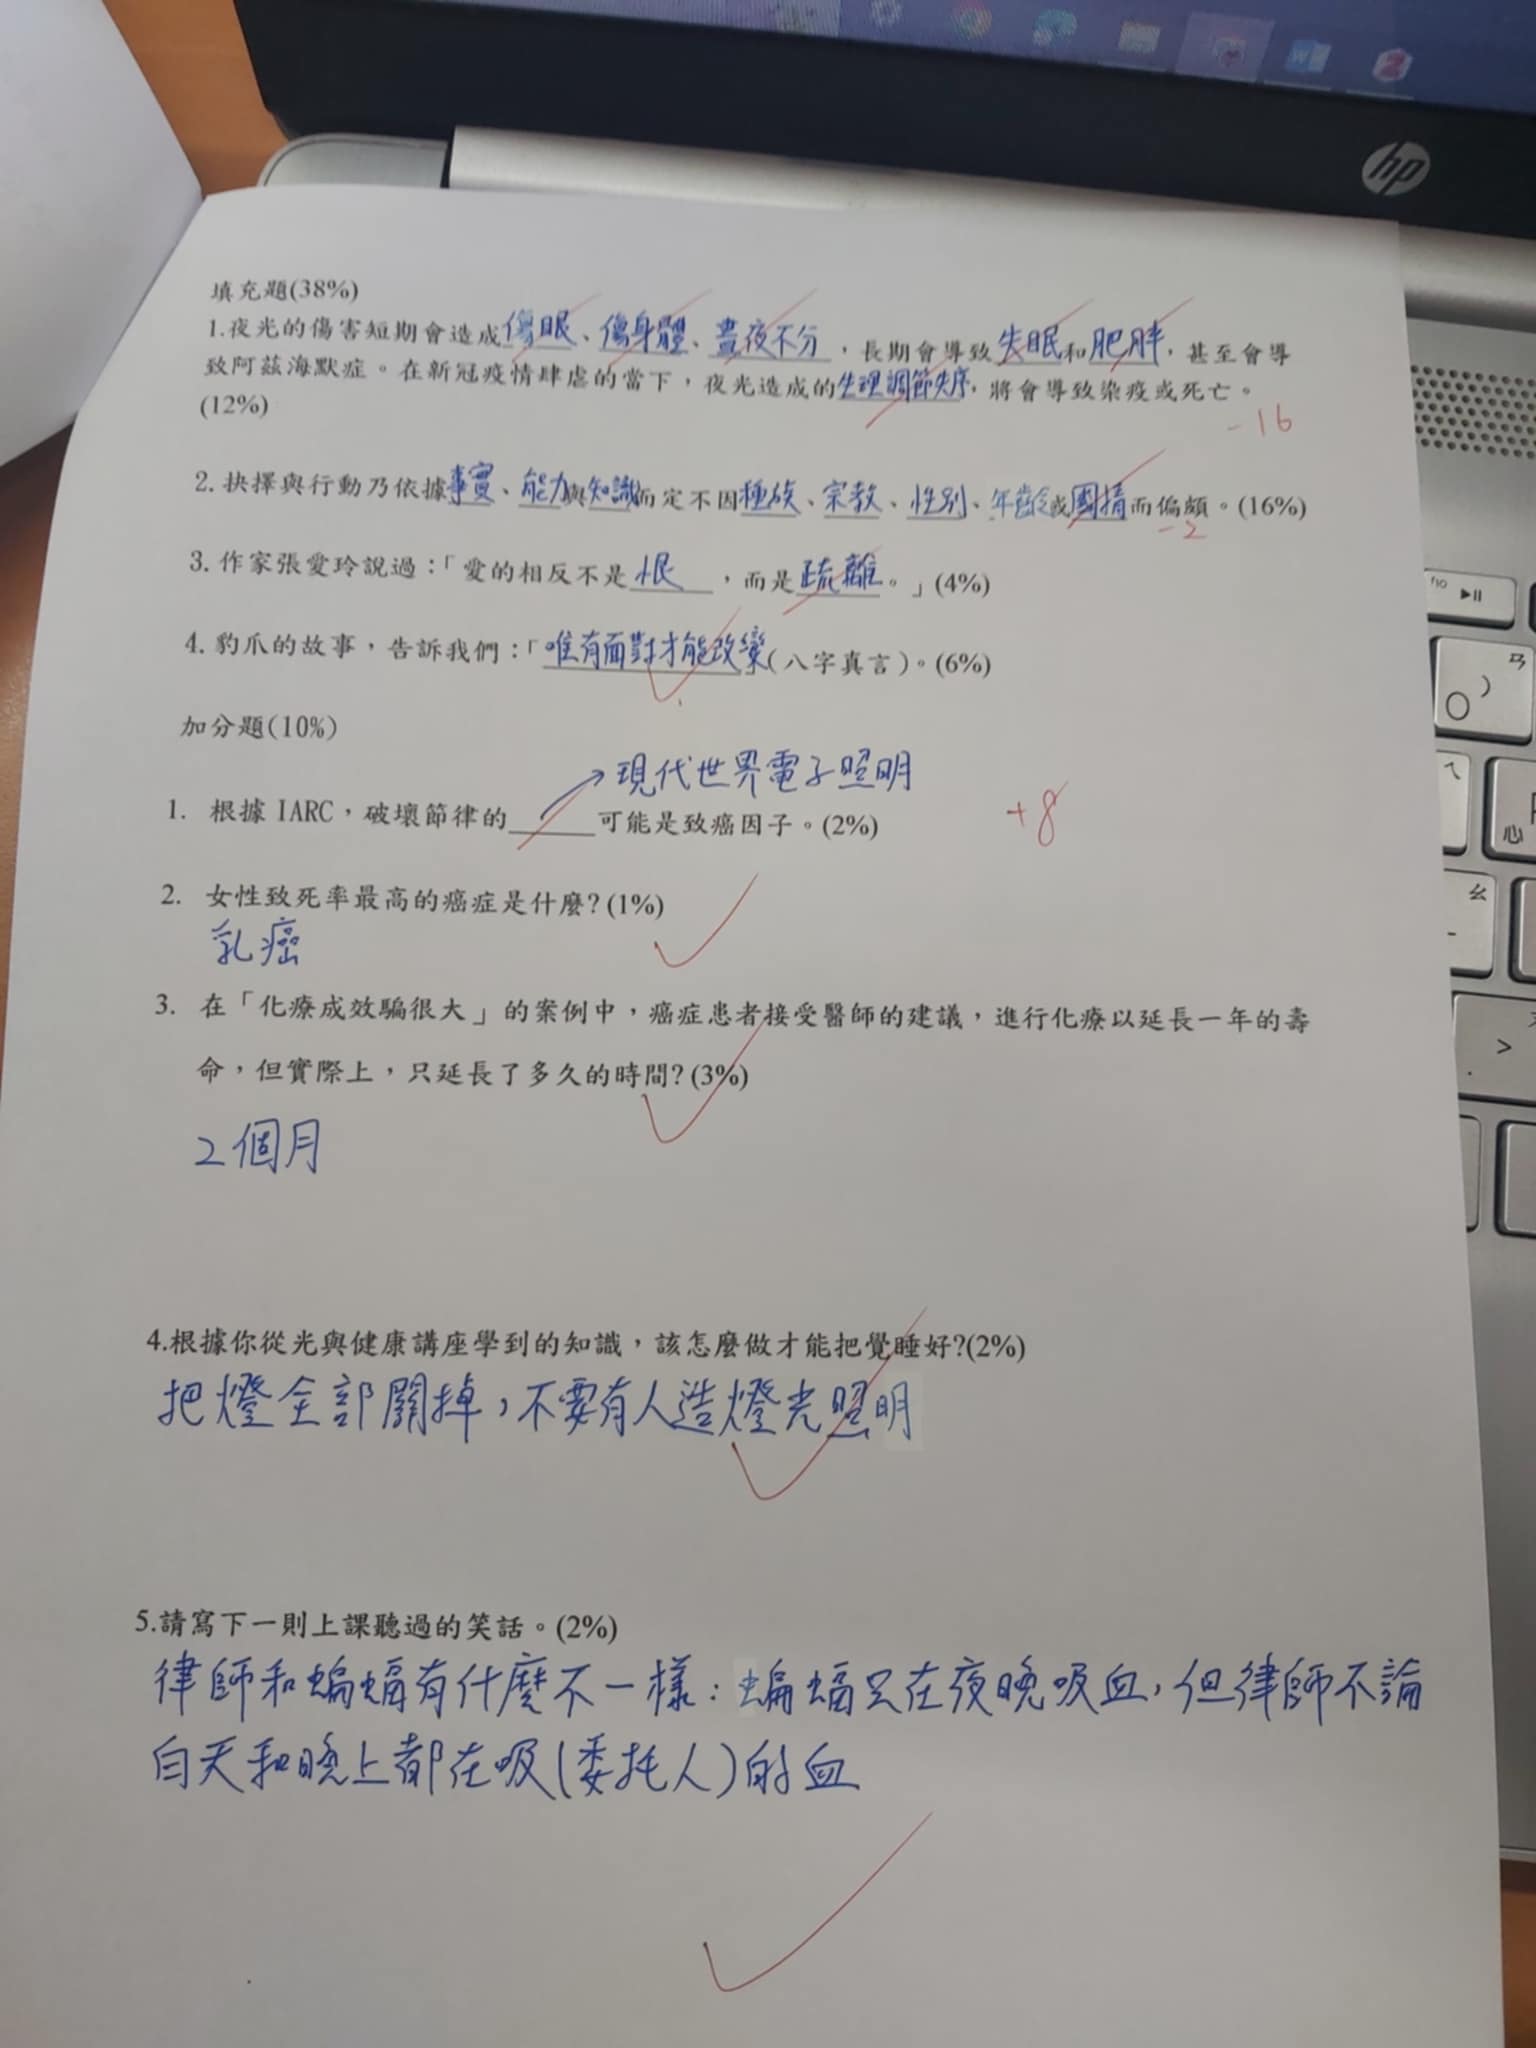 hp
填充題(38%)
1.夜光的傷害短期會造成傷眼、傷身體、晝夜不分，長期會導致失眠和肥胖，甚至會導
致阿茲海默症。在新冠疫情肆虐的當下，夜光造成的生理調節失序，將會導致染疫或死亡。
(12%)
-16
2. 抉擇與行動乃依據事實、能力與知識而定不因種族、宗教、性別、年齡或國情而偏頗。(16%)
-2
3. 作家張愛玲說過：「愛的相反不是恨，而是疏離。」(4%)
4. 豹爪的故事，告訴我們：「唯有面對才能改變」(八字真言)。(6%)
加分題(10%)
現代世界電子照明
1. 根據 IARC，破壞節律的____可能是致癌因子。(2%)
+8
2. 女性致死率最高的癌症是什麼?(1%)
乳癌
3. 在「化療成效騙很大」的案例中，癌症患者接受醫師的建議，進行化療以延長一年的壽
命，但實際上，只延長了多久的時間?(3%)
2個月
4.根據你從光與健康講座學到的知識，該怎麼做才能把覺睡好?(2%)
把燈全部關掉，不要有人造燈光照明
5.請寫下一則上課聽過的笑話。(2%)
律師和蝙蝠有什麼不一樣：蝙蝠只在夜晚吸血，但律師不論
白天和晚上都在吸(委托人)的血